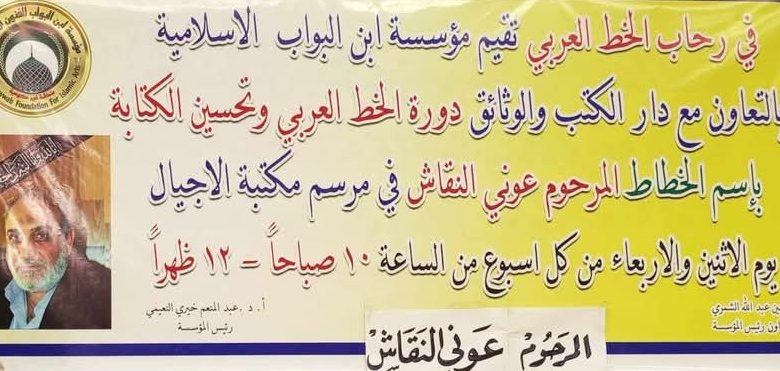 في رحاب الخط العربي تقيم مؤسسة ابن البواب الاسلامية
بالتعاون مع دار الكتب والوثائق دورة الخط العربي وتحسين الكتابة
بإسم الخطاط المرحوم عوني النقاش في مرسم مكتبة الاجيال
يوم الاثنين والاربعاء من كل اسبوع من الساعة ١٠ صباحاً - ١٢ ظهراً
عبد الله الشمري
رئيس المؤسسة
أ. د. عبد المنعم خيري النعيمي
رئيس المؤسسة
المرحوم عوني النقاش
مؤسسة ابن البواب للفنون
Foundation For Islamic Arts